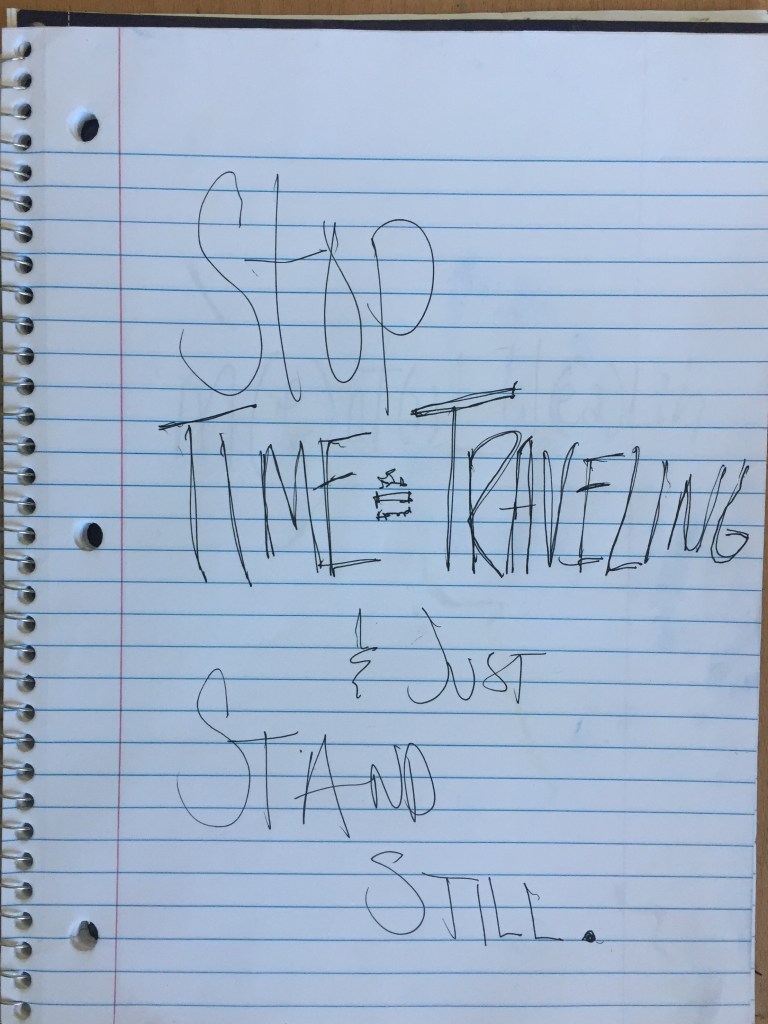 Stop
TIME = TRAVELING
& JUST
STAND
STILL.